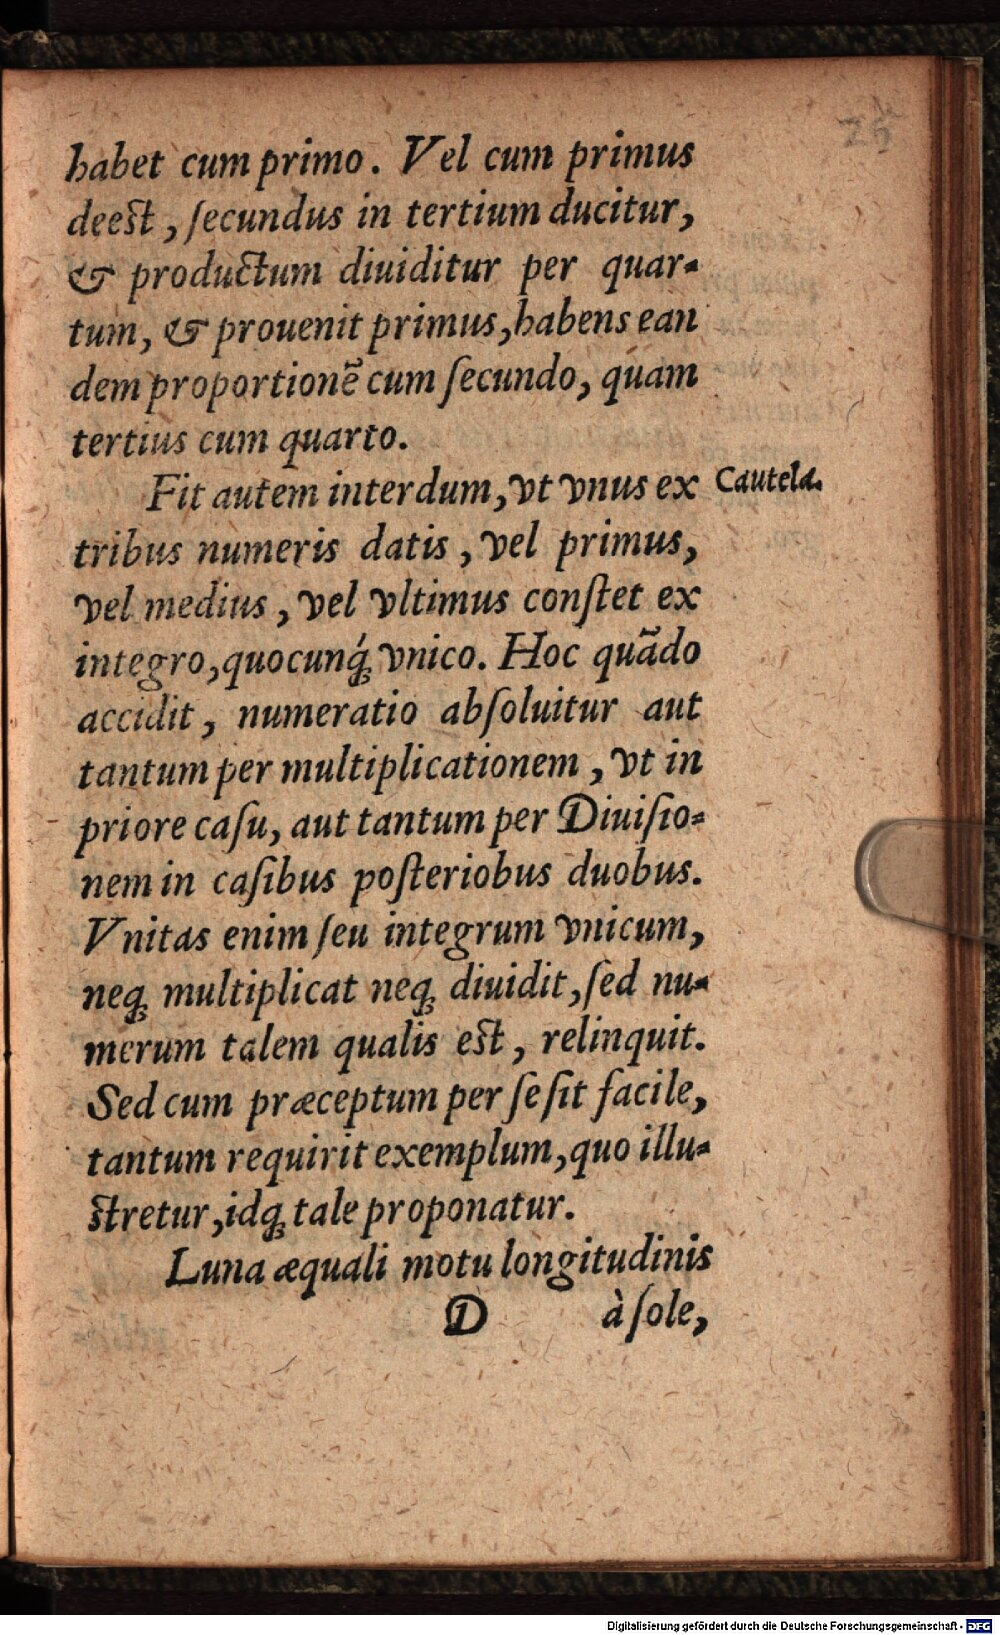 25
habet cum primo. Vel cum primus
deest, ſecundus in tertium ducitur,
& productum diuiditur per quar-
tum, & prouenit primus, habens ean
dem proportionē cum ſecundo, quam
tertius cum quarto.
Fit autem interdum, vt vnus ex Cautela.
tribus numeris datis, vel primus,
vel medius, vel vltimus conſtet ex
integro, quocunq́ꝫ vnico. Hoc quãdo
accidit, numeratio abſoluitur aut
tantum per multiplicationem, vt in
priore caſu, aut tantum per Diuiſio-
nem in caſibus poſteriobus duobus.
Vnitas enim ſeu integrum vnicum,
neqꝫ multiplicat neqꝫ diuidit, ſed nu-
merum talem qualis est, relinquit.
Sed cum præceptum per ſe ſit facile,
tantum requirit exemplum, quo illu-
stretur, idqꝫ tale proponatur.
Luna æquali motu longitudinis
D à ſole,
Digitalisierung gefördert durch die Deutsche Forschungsgemeinschaft - DFG